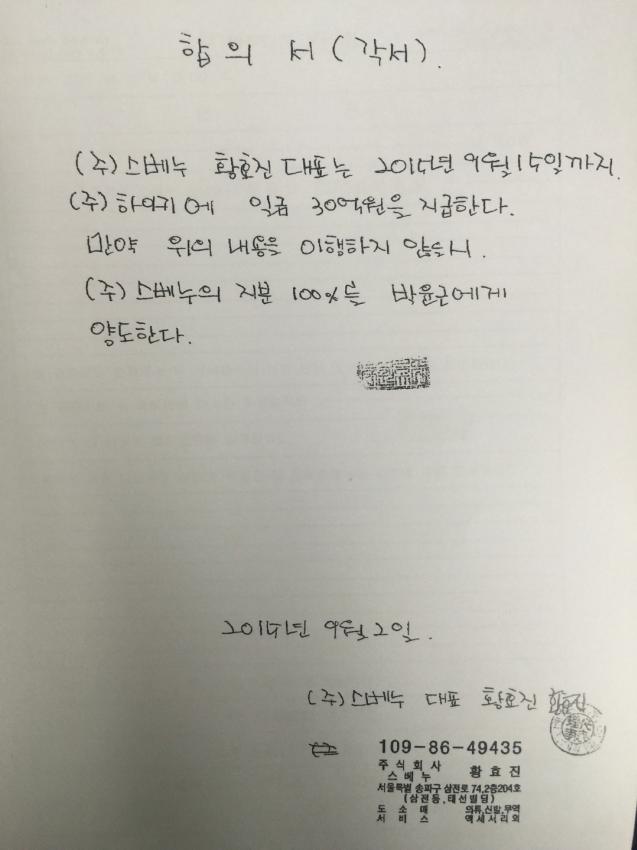 합의 서(각서).
(주)스베누 황효진 대표는 2015년 9월 15일까지.
(주)하이키에 일금 30억원을 지급한다.
만약 위의 내용을 이행하지 않을시.
(주)스베누의 지분 100%를 박윤근에게
양도한다.
2015년 9월 2일.
(주)스베누 대표 황효진 황효진
109-86-49435
주식회사
스베누 황효진
서울특별 송파구 삼전로 74,2층204호
(삼전동,태선빌딩)
도소매 의류,신발,무역
서비스 액세서리외